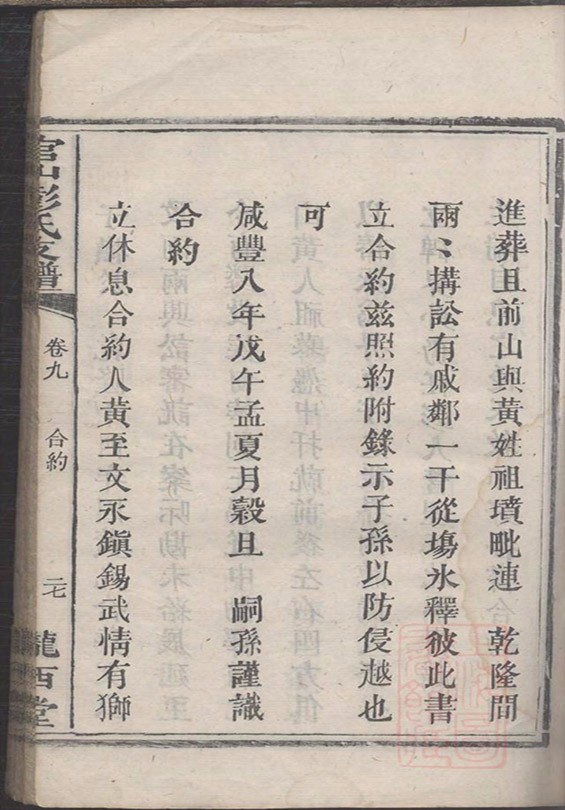 進葬且前山與黃姓祖墳毗連 乾隆間
兩〻搆訟有戚鄰一干從塲氷釋彼此書
立合約玆照約附錄示子孫以防侵越也
可
咸豐八年戊午孟夏月穀旦 嗣孫謹識
合約
立休息合約人黃至文永鎭錫武情有獅
官山彭氏支譜
卷九
合約
二七
隴西堂